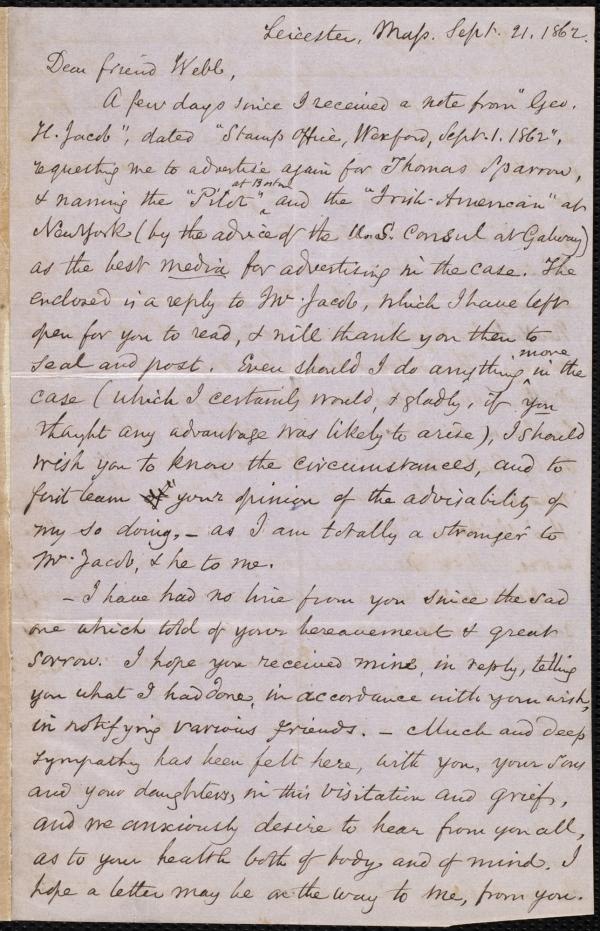 Leicester, Mass. Sept. 21. 1862.
Dear friend Webb,
A few days since I received a note from "Geo.
H. Jacob", dated "Stamp Office, Wexford, Sept. 1. 1862",
requesting me to advertise again for Thomas Sparrow,
& naming the "Pilot" at Boston and the "Irish-American" at
New York (by the advice of the U.S. Consul at Galway)
as the best media for advertising in the case. The
enclosed is a reply to Mr. Jacob, which I have left
open for you to read, & will thank you then to
seal and post. Even should I do anything more in the
case (which I certainly would, & gladly, if you
thought any advantage was likely to arise), I should
wish you to know the circumstances, and to
first learn your opinion of the advisability of
my so doing, – as I am totally a stranger to
Mr. Jacob, & he to me.
– I have had no line from you since the sad
one which told of your bereavement & great
sorrow. I hope you received mine, in reply, telling
you what I had done, in accordance with your wish,
in notifying various friends. – Much and deep
sympathy has been felt here, with you, your sons
and your daughters, in this visitation and grief,
and we anxiously desire to hear from you all,
as to your health both of body and of mind. I
hope a letter may be on the way to me, from you.